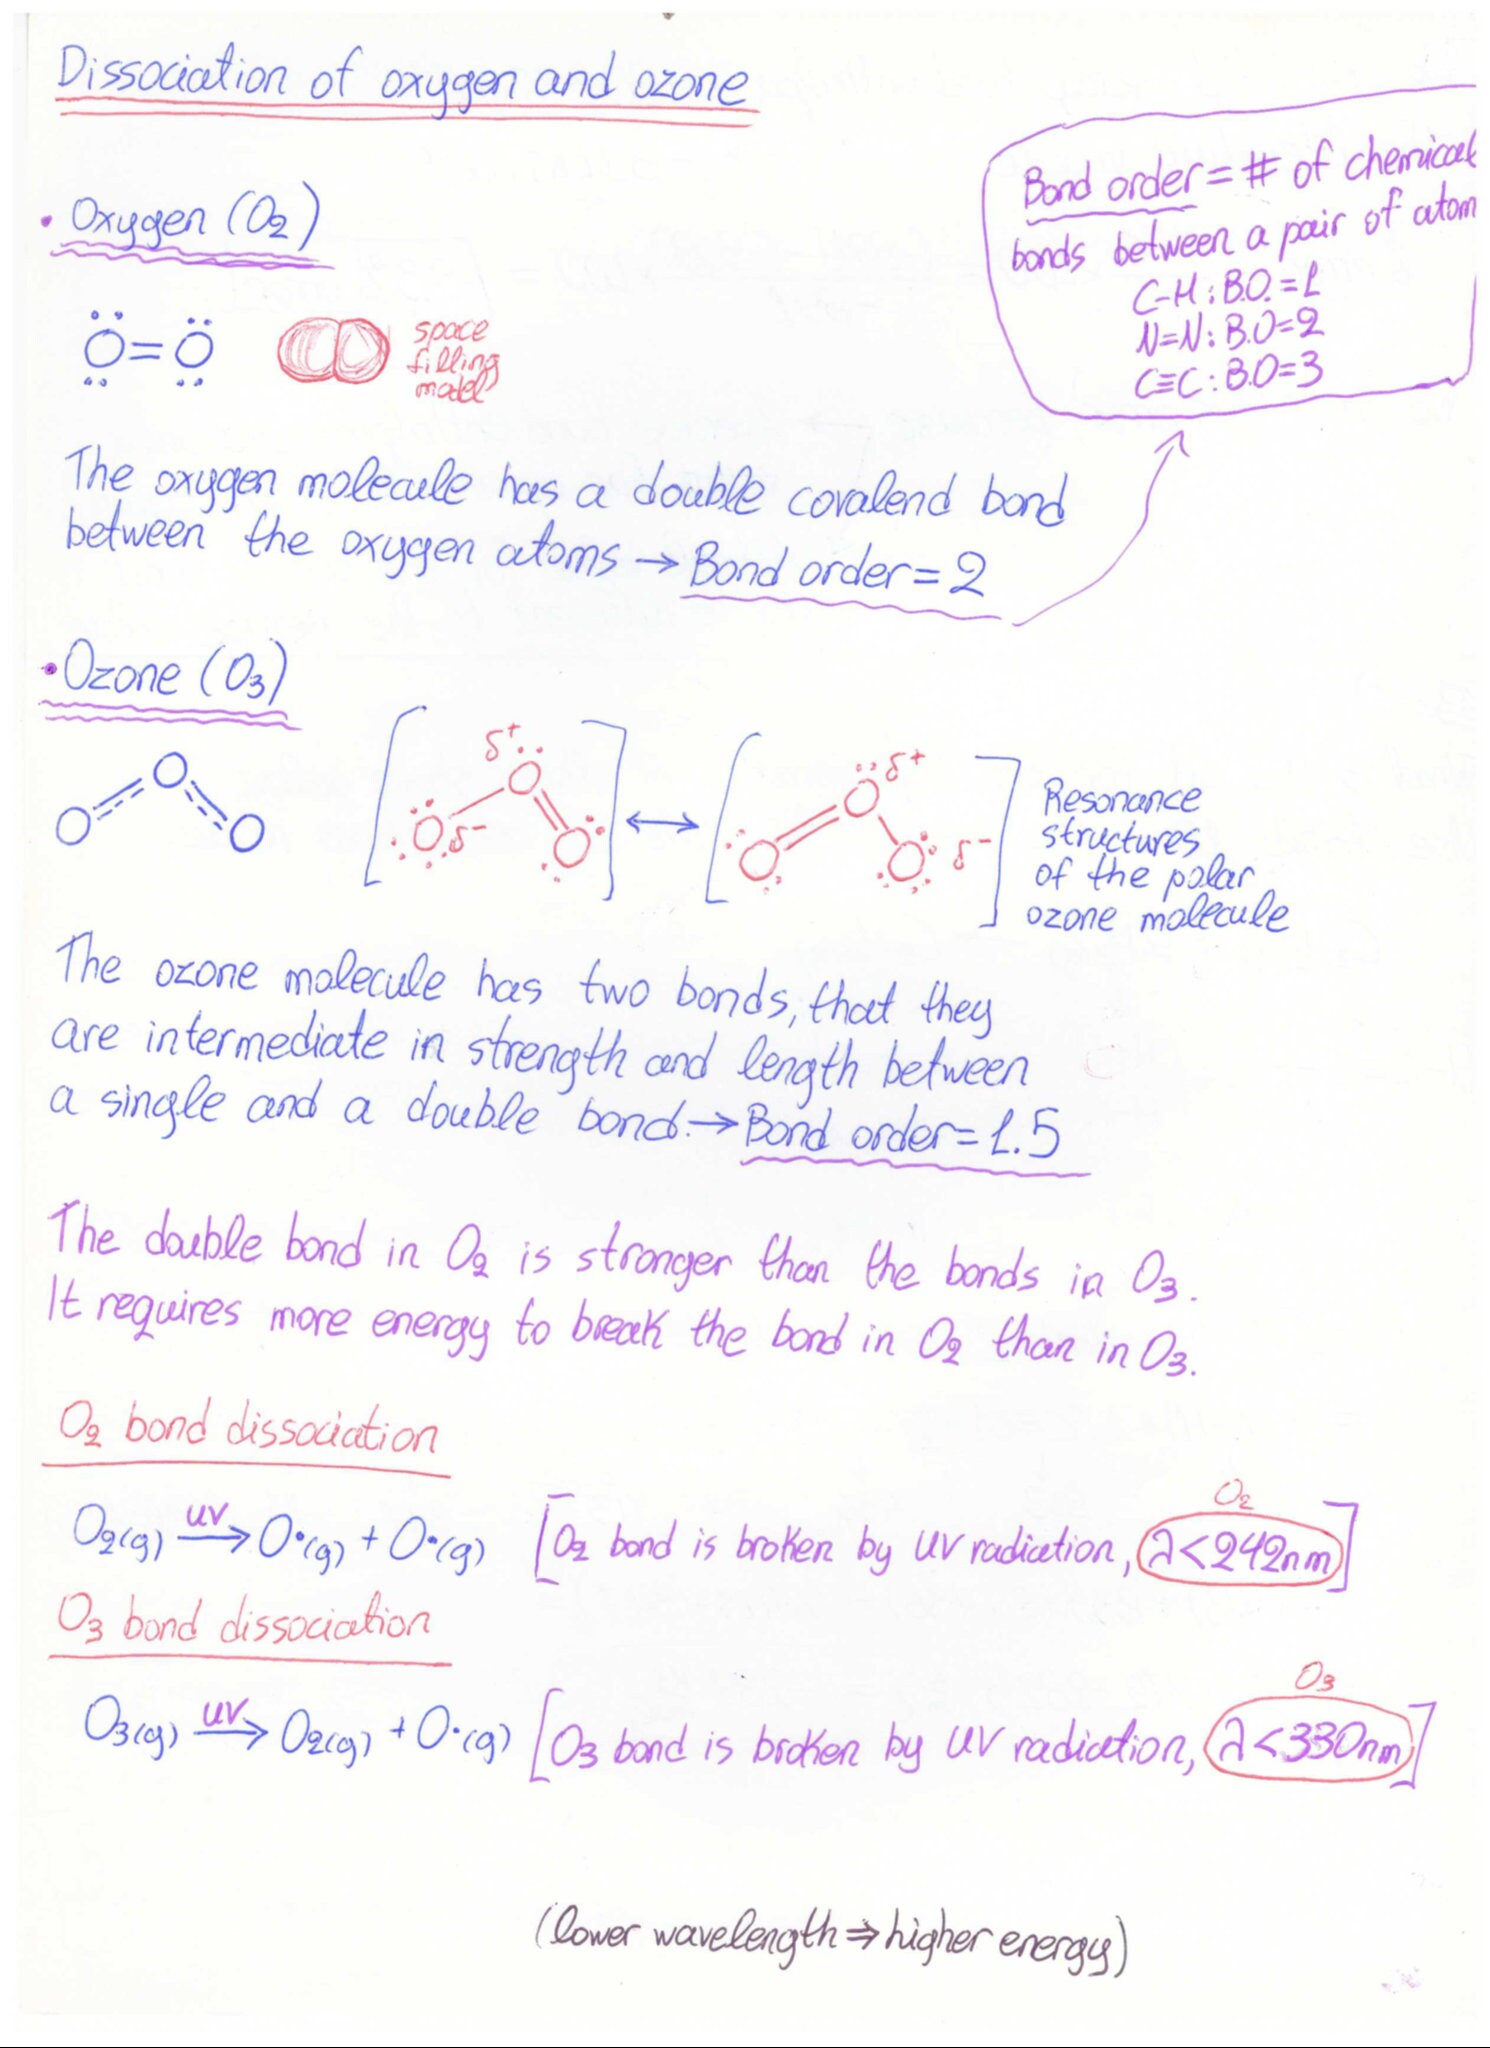 Dissociation of oxygen and ozone
Bond order = # of chemical
bonds between a pair of atom
C-H : B.O. = 1
N=N : B.O = 2
C≡C : B.O = 3
• Oxygen (O₂)
O=O
space
filling
model
The oxygen molecule has a double covalend bond
between the oxygen atoms → Bond order = 2
• Ozone (O₃)
O O O
δ+ O O δ- O
δ+ O O O δ-
Resonance
structures
of the polar
ozone molecule
The ozone molecule has two bonds, that they
are intermediate in strength and length between
a single and a double bond. → Bond order = 1.5
The double bond in O₂ is stronger than the bonds in O₃.
It requires more energy to break the bond in O₂ than in O₃.
O₂ bond dissociation
O₂(g) UV → O•(g) + O•(g) [O₂ bond is broken by UV radiation, λ<242nm] O₂
O₃ bond dissociation
O₃(g) UV → O₂(g) + O•(g) [O₃ bond is broken by UV radiation, λ<330nm] O₃
(lower wavelength ⇒ higher energy)